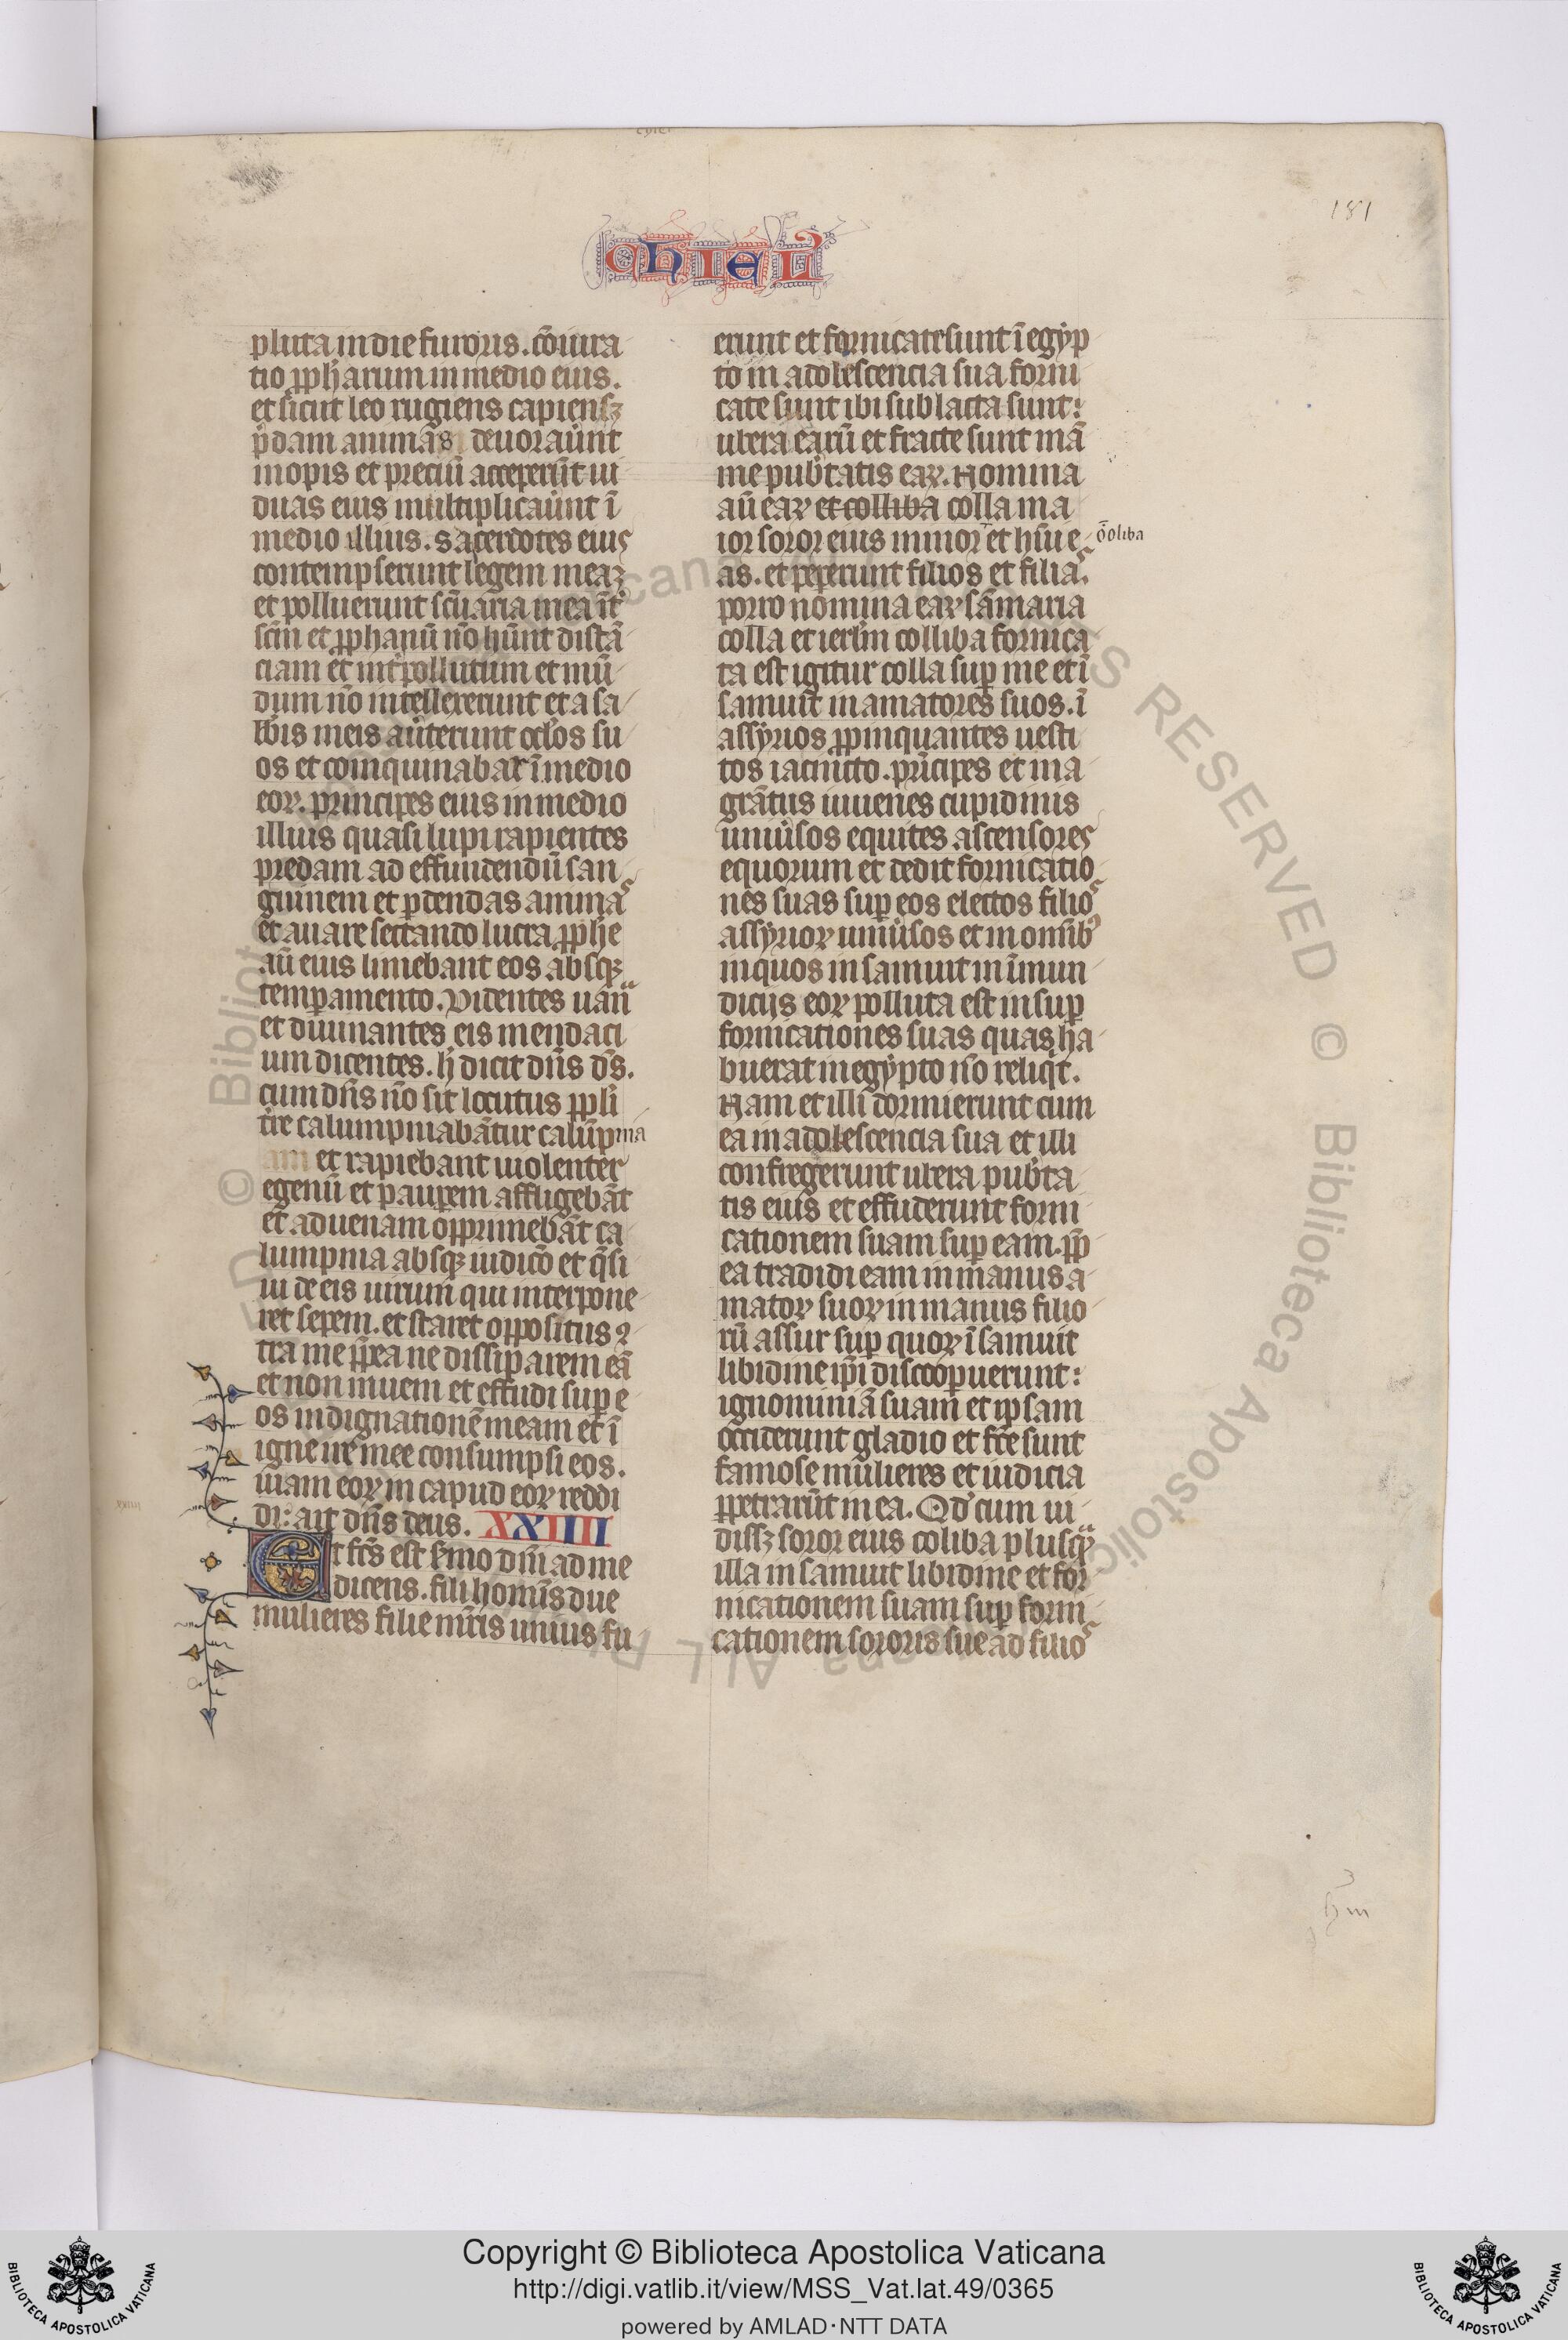 181
chiel
pluta in die furoris. cōiura
tio ꝓpharum in medio eius.
et sicut leo rugiens capiensꝫ
p̄dam animās deuorauͤnt
inopis et preciū acceperūt ui
duas eius multiplicauͤnt ī
medio illius. Sacerdotes eius
contempserunt legem meaꝫ
et polluerunt scūaria mea īt
scm̄ et ꝓphanū nō hūnt distā
ciam et int pollutum et mū
dum nō intellexerunt et a sa
bbis meis auͤterunt oclos su
os et coinquinabar ī medio
eoꝝ. principes eius in medio
illius quasi lupi rapientes
predam ad effundendū san
guinem et ꝑdendas animas
et auare sectando lucra ꝓphe
aū eius liniebant eos absqꝫ
temꝑamento. Videntes uana
et diuinantes eis mendaci
um dicentes. h̄ dicit dn̄s ds̄.
cum dn̄s nō sit locutus ꝓpli
tre calumpniabātur calūpnia
am et rapiebant uiolenter
egenū et pauꝑem affligebāt
et aduenam opprimebāt ca
lumpnia absqꝫ iudicō et q̄si
ui de eis uirum qui interpone
ret sepem. et staret oppositus ꝯ
tra me ꝓp̄ea ne dissiparem eā
et non inueni et effudi suꝑ e
os indignationē meam et ī
igne ire mee consumpsi eos.
uiam eoꝝ in capud eoꝝ reddi
di: ait dn̄s deus. XXIIII
Et fcs̄ est ſmo dn̄i ad me
dicens. fili homīs due
mulieres filie mr̄is unius fu
erunt et fornicate sunt ī egyp
to in adolescencia sua forni
cate sunt ibi sub lacta sunt:
ubera earū et fracte sunt mā
me pub̄tatis eaꝝ. Nomina
aū eaꝝ et colliba colla ma
ior soror eius minor et hīu e
ōoliba
as. et peperunt filios et filias.
porro nomina eaꝝ sāmaria
colla et ierl̄m colliba fornica
ta est igitur colla suꝑ me et ī
samuit in amatores suos. ī
assyrios ꝓpinquantes uesti
tos iacincto. pͥncipes et ma
grātus iuuenes cupidinis
uniuͤsos equites ascensores
equorum et dedit fornicatio
nes suas suꝑ eos electos filios
assyrioꝝ uniuͤsos et in omībꝰ
in quos insamuit in īmun
dicijs eoꝝ polluta est insuꝑ
fornicationes suas quas ha
buerat in egypto nō reliqͥt.
Nam et illi dormierunt cum
ea in adolescencia sua et illi
confregerunt ubera pub̄ta
tis eius et effuderunt forni
cationem suam suꝑ eam. ꝓp̄
ea tradidi eam in manus a
matoꝝ suoꝝ in manus filio
rū assur suꝑ quoꝝ īsamuit
libidine ip̄i discooꝑuerunt:
ignominiā suam et ipsam
occiderunt gladio et fc̄e sunt
famose mulieres et iudicia
ꝑpetrarūt in ea. Qd̓ cum ui
dissꝫ soror eius coliba plusqͣ
illa insamuit libidine et for
nicationem suam suꝑ forni
cationem sororis sue ad filios
Copyright © Biblioteca Apostolica Vaticana
http://digi.vatlib.it/view/MSS_Vat.lat.49/0365
powered by AMLAD·NTT DATA